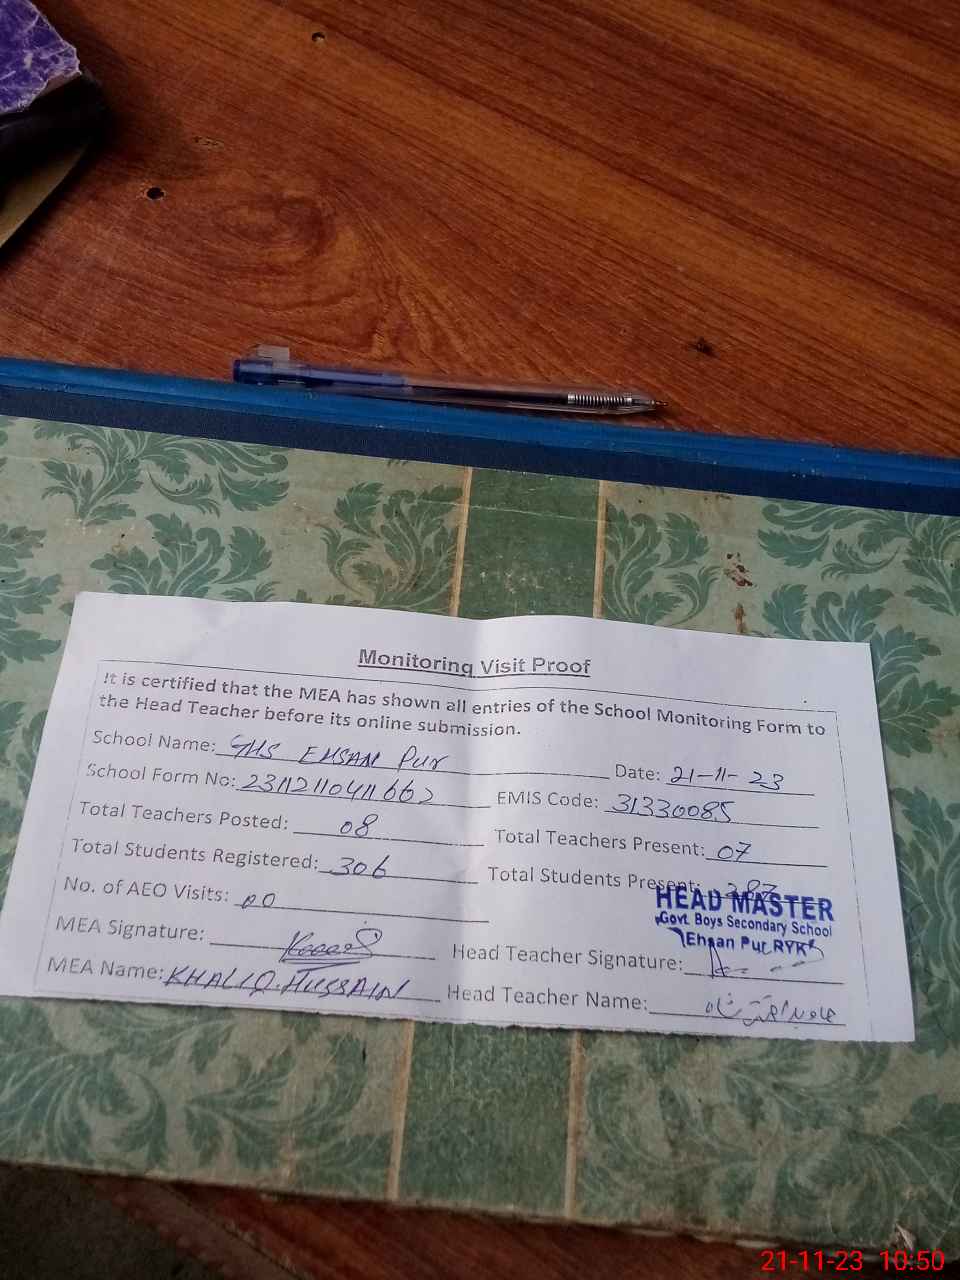 Monitoring Visit Proof
It is certified that the MEA has shown all entries of the School Monitoring Form to
the Head Teacher before its online submission.
School Name: GHS EHSAN Pur Date: 21-11-23
School Form No: EMIS Code: 31330085
Total Teachers Posted: 08 Total Teachers Present: 07
Total Students Registered: 306 Total Students Present: 287
No. of AEO Visits: 00
HEAD MASTER
Govt. Boys Secondary School
Ehsan Pur RYK
MEA Signature: Head Teacher Signature:
MEA Name: KHALIQ HUSSAIN Head Teacher Name:
21-11-23 10:50